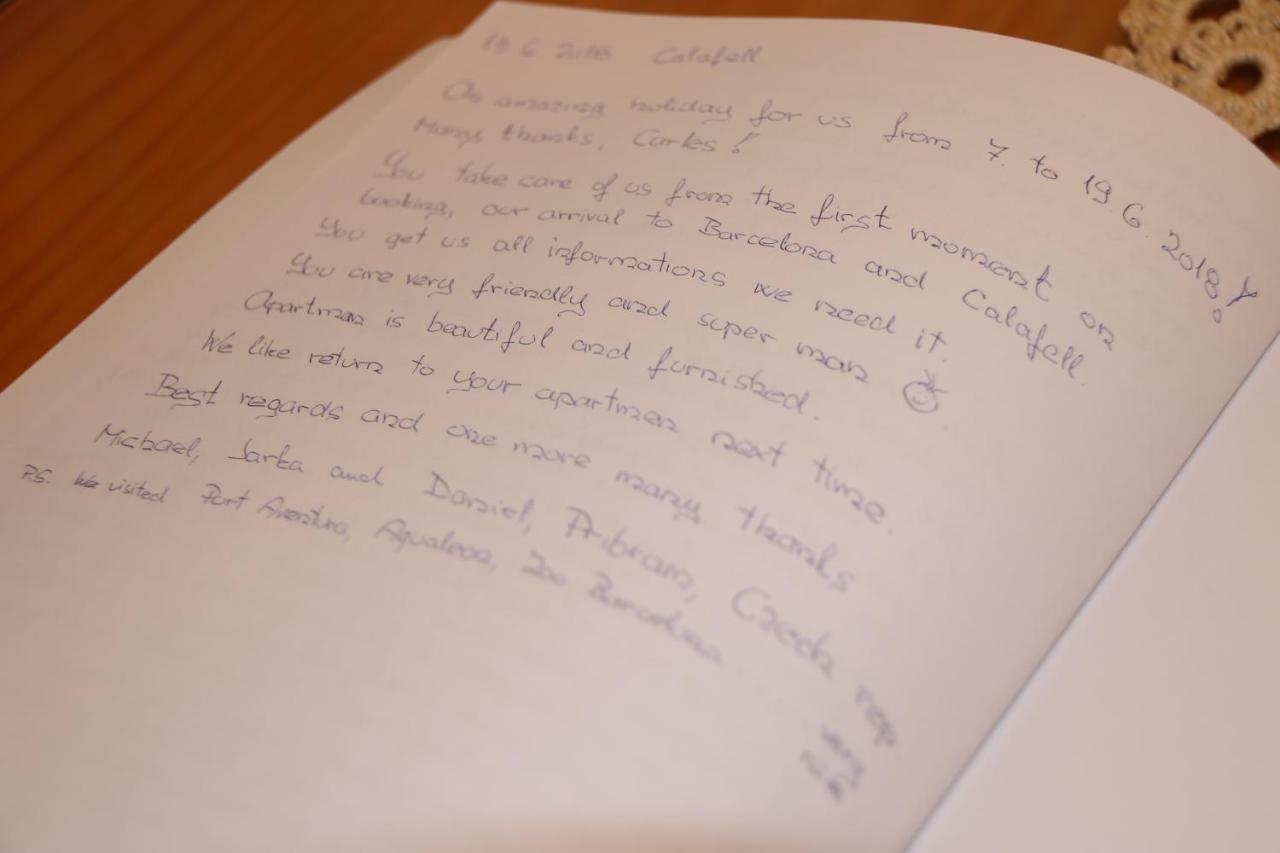 19.6.2018 Calafell
An amazing holiday for us from 7. to 19.6.2018!
Many thanks, Carles!
You take care of us from the first moment on
booking, our arrival to Barcelona and Calafell.
You get us all informations we need it.
You are very friendly and super man ☺.
Apartman is beautiful and furnished.
We like return to your apartmen next time.
Best regards and one more many thanks
Michael, Jarka and Daniel, Pribram, Czech rep
P.S. We visited Port Aventura, Aqualeon, Zoo Barcelona...
very